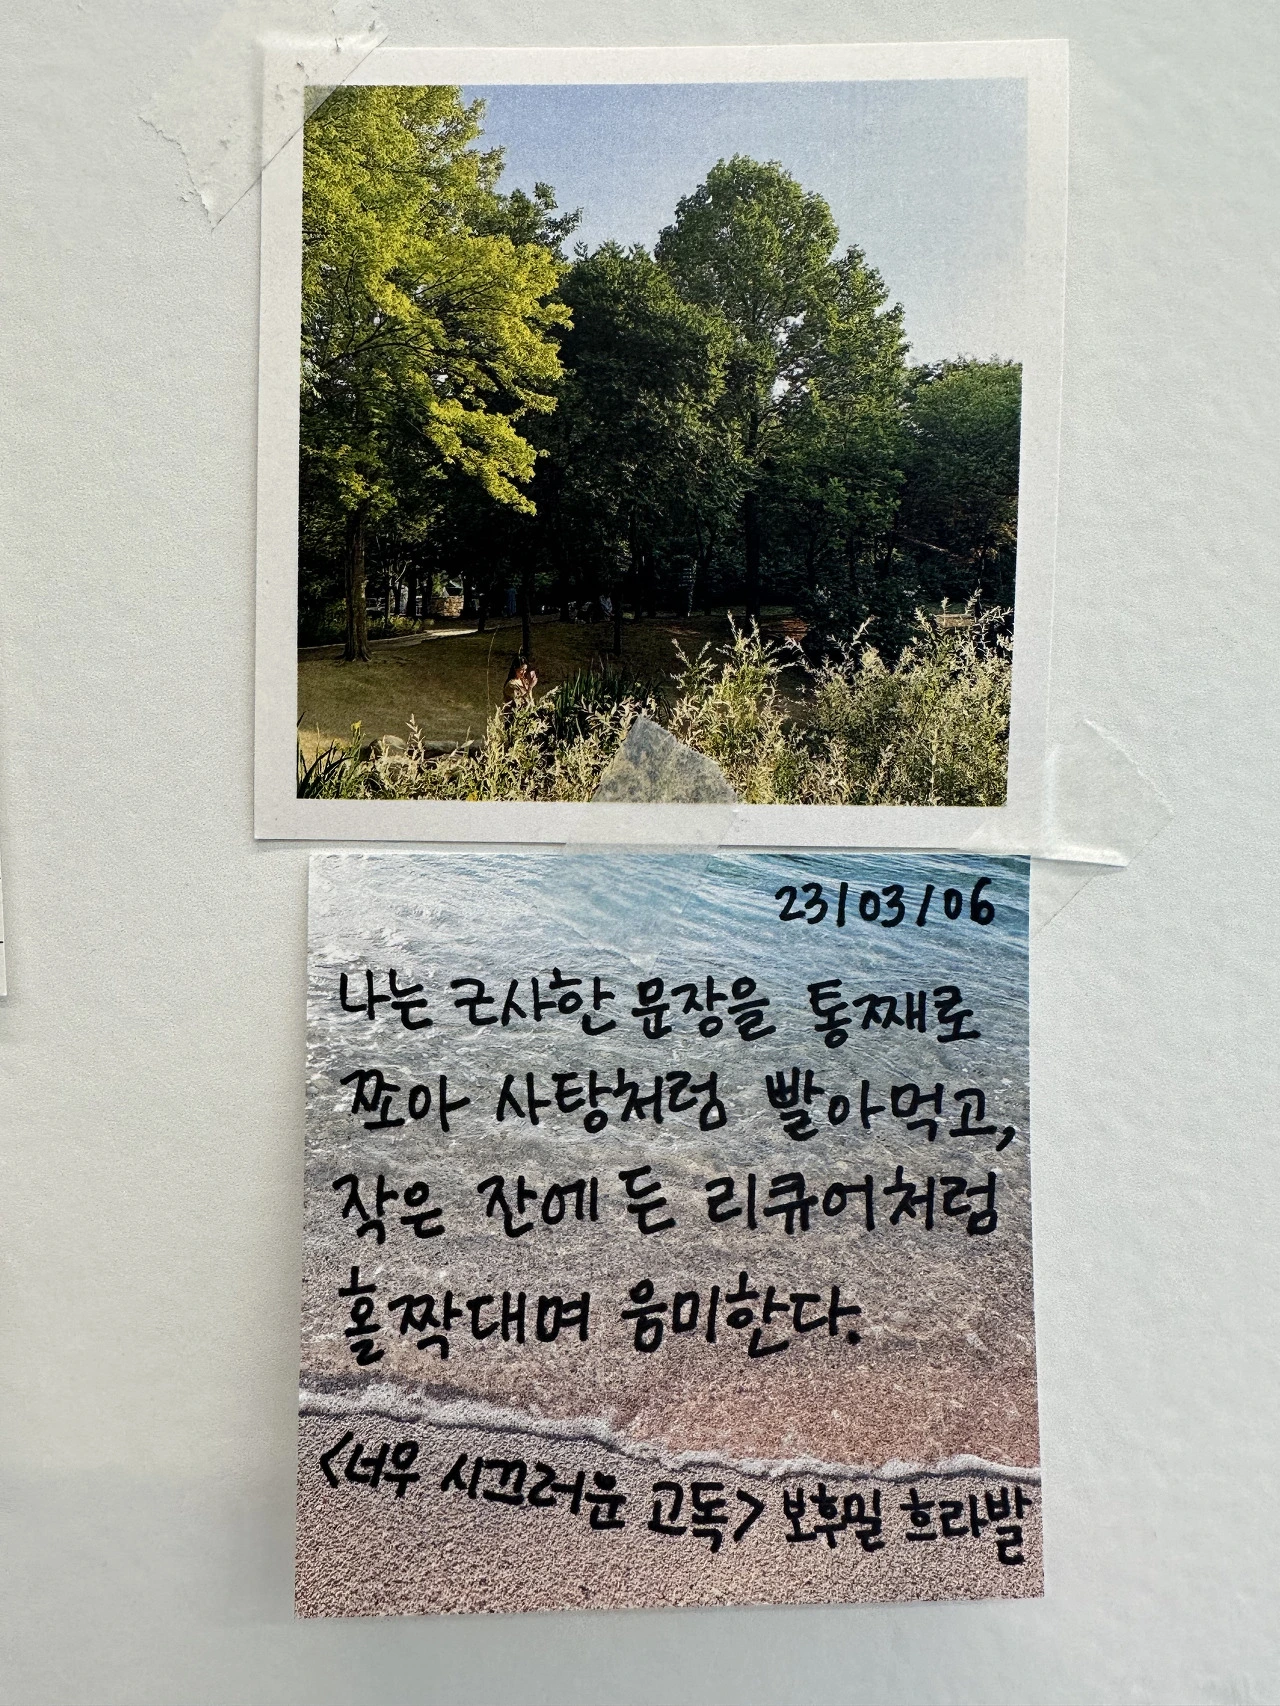 23/03/06
나는 근사한 문장을 통째로
쪼아 사탕처럼 빨아먹고,
작은 잔에 든 리큐어처럼
홀짝대며 음미한다.
<너무 시끄러운 고독> 보후밀 흐라발